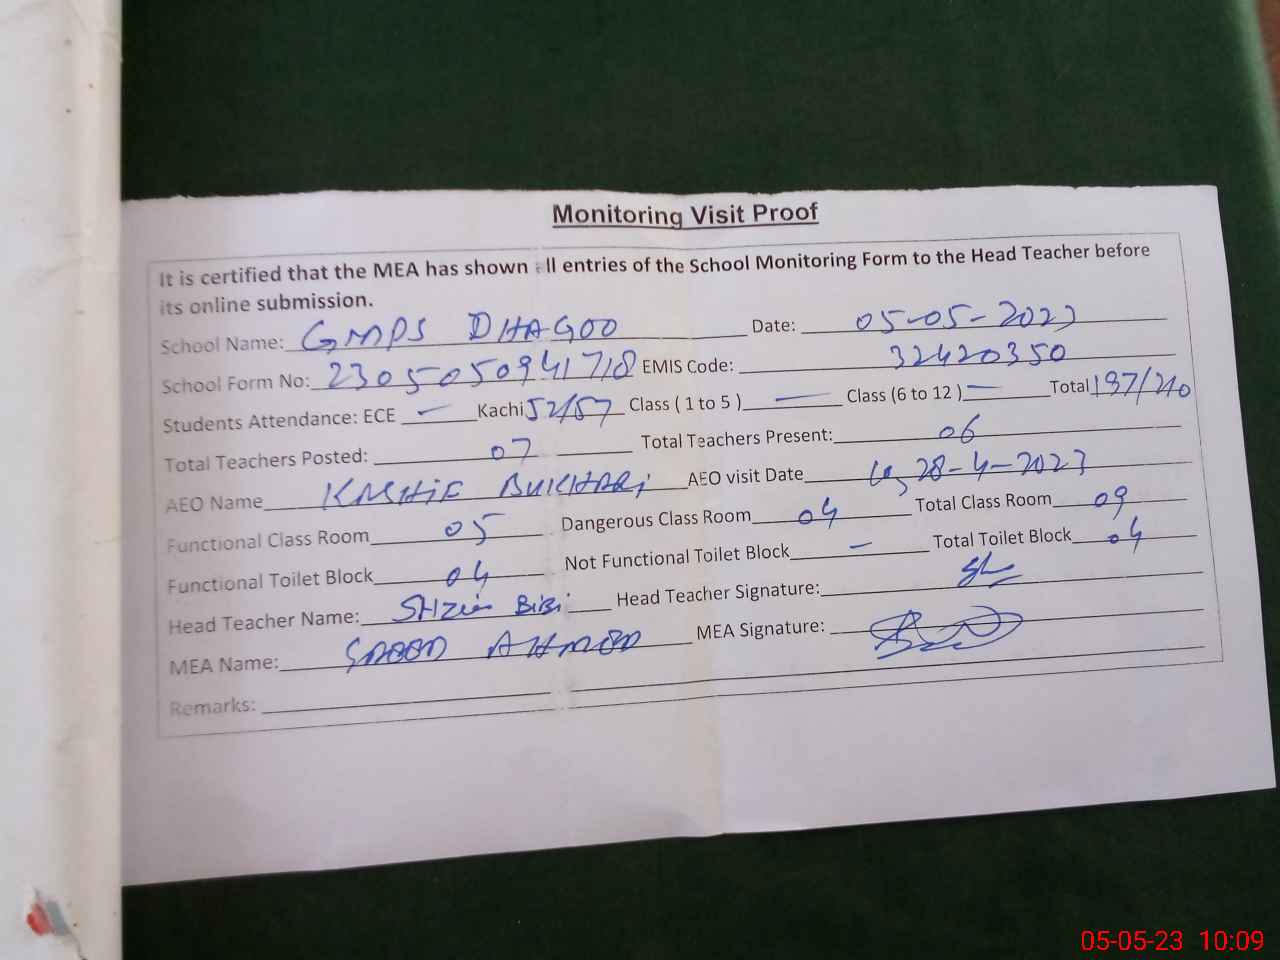 Monitoring Visit Proof
It is certified that the MEA has shown all entries of the School Monitoring Form to the Head Teacher before
its online submission.
School Name: GMPS DHAGOO Date: 05-05-2023
School Form No: 2305050941718 EMIS Code: 32420350
Students Attendance: ECE — Kachi 52/57 Class ( 1 to 5 ) — Class (6 to 12 ) — Total 197/210
Total Teachers Posted: 07 Total Teachers Present: 06
AEO Name KASHIF BUKHARI AEO visit Date 28-4-2023
Functional Class Room 05 Dangerous Class Room 04 Total Class Room 09
Functional Toilet Block 04 Not Functional Toilet Block — Total Toilet Block 04
Head Teacher Name: BiBi Head Teacher Signature:
MEA Name: SAEED AHMED MEA Signature:
Remarks:
05-05-23 10:09